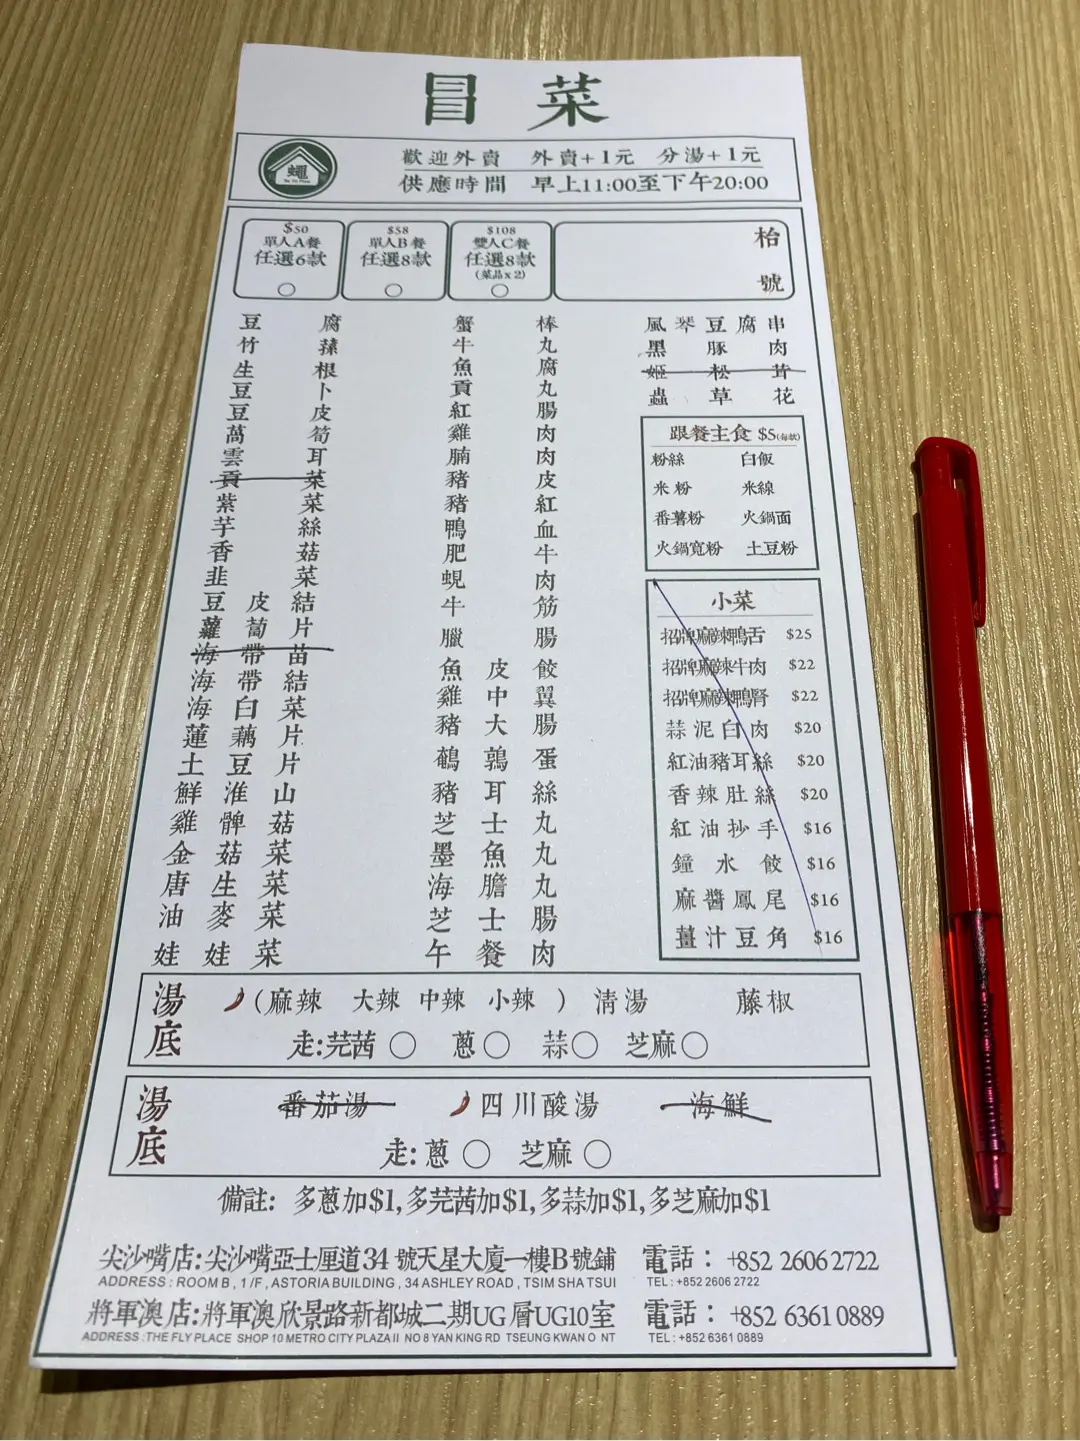 冒菜
蠅
歡迎外賣 外賣+1元 分湯+1元
供應時間 早上11:00至下午20:00
$50
單人A餐
任選6款
$58
單人B餐
任選8款
$108
雙人C餐
任選8款
(菜品x2)
枱號
豆腐
竹蓀
生根
豆卜
豆皮
萵筍
雲耳
貢菜
紫菜
芋絲
香菇
韭菜
豆皮結
蘿蔔片
海帶苗
海帶結
海白菜
蓮藕片
土豆片
鮮淮山
雞髀菇
金菇菜
唐生菜
油麥菜
娃娃菜
蟹棒
牛丸
魚腐
貢丸
紅腸
雞肉
腩肉
豬皮
豬紅
鴨血
肥牛
蜆肉
牛筋
臘腸
魚皮餃
雞中翼
豬大腸
鵪鶉蛋
豬耳絲
芝士丸
墨魚丸
海膽丸
芝士腸
午餐肉
風琴豆腐串
黑豚肉
姬松茸
蟲草花
跟餐主食 $5(每款)
粉絲 白飯
米粉 米線
番薯粉 火鍋面
火鍋寬粉 土豆粉
小菜
招牌麻辣鴨舌 $25
招牌麻辣牛肉 $22
招牌麻辣鴨腎 $22
蒜泥白肉 $20
紅油豬耳絲 $20
香辣肚絲 $20
紅油抄手 $16
鐘水餃 $16
麻醬鳳尾 $16
薑汁豆角 $16
湯底 (麻辣 大辣 中辣 小辣) 清湯 藤椒
走:芫茜 蔥 蒜 芝麻
湯底 番茄湯 四川酸湯 海鮮
走:蔥 芝麻
備註: 多蔥加$1,多芫茜加$1,多蒜加$1,多芝麻加$1
尖沙嘴店:尖沙嘴亞士厘道34號天星大廈一樓B號鋪 電話：+852 2606 2722
ADDRESS : ROOM B , 1 / F , ASTORIA BUILDING , 34 ASHLEY ROAD , TSIM SHA TSUI TEL : +852 2606 2722
將軍澳店:將軍澳欣景路新都城二期UG層UG10室 電話：+852 6361 0889
ADDRESS :THE FLY PLACE SHOP 10 METRO CITY PLAZA II NO 8 YAN KING RD TSEUNG KWAN O NT TEL : +852 6361 0889